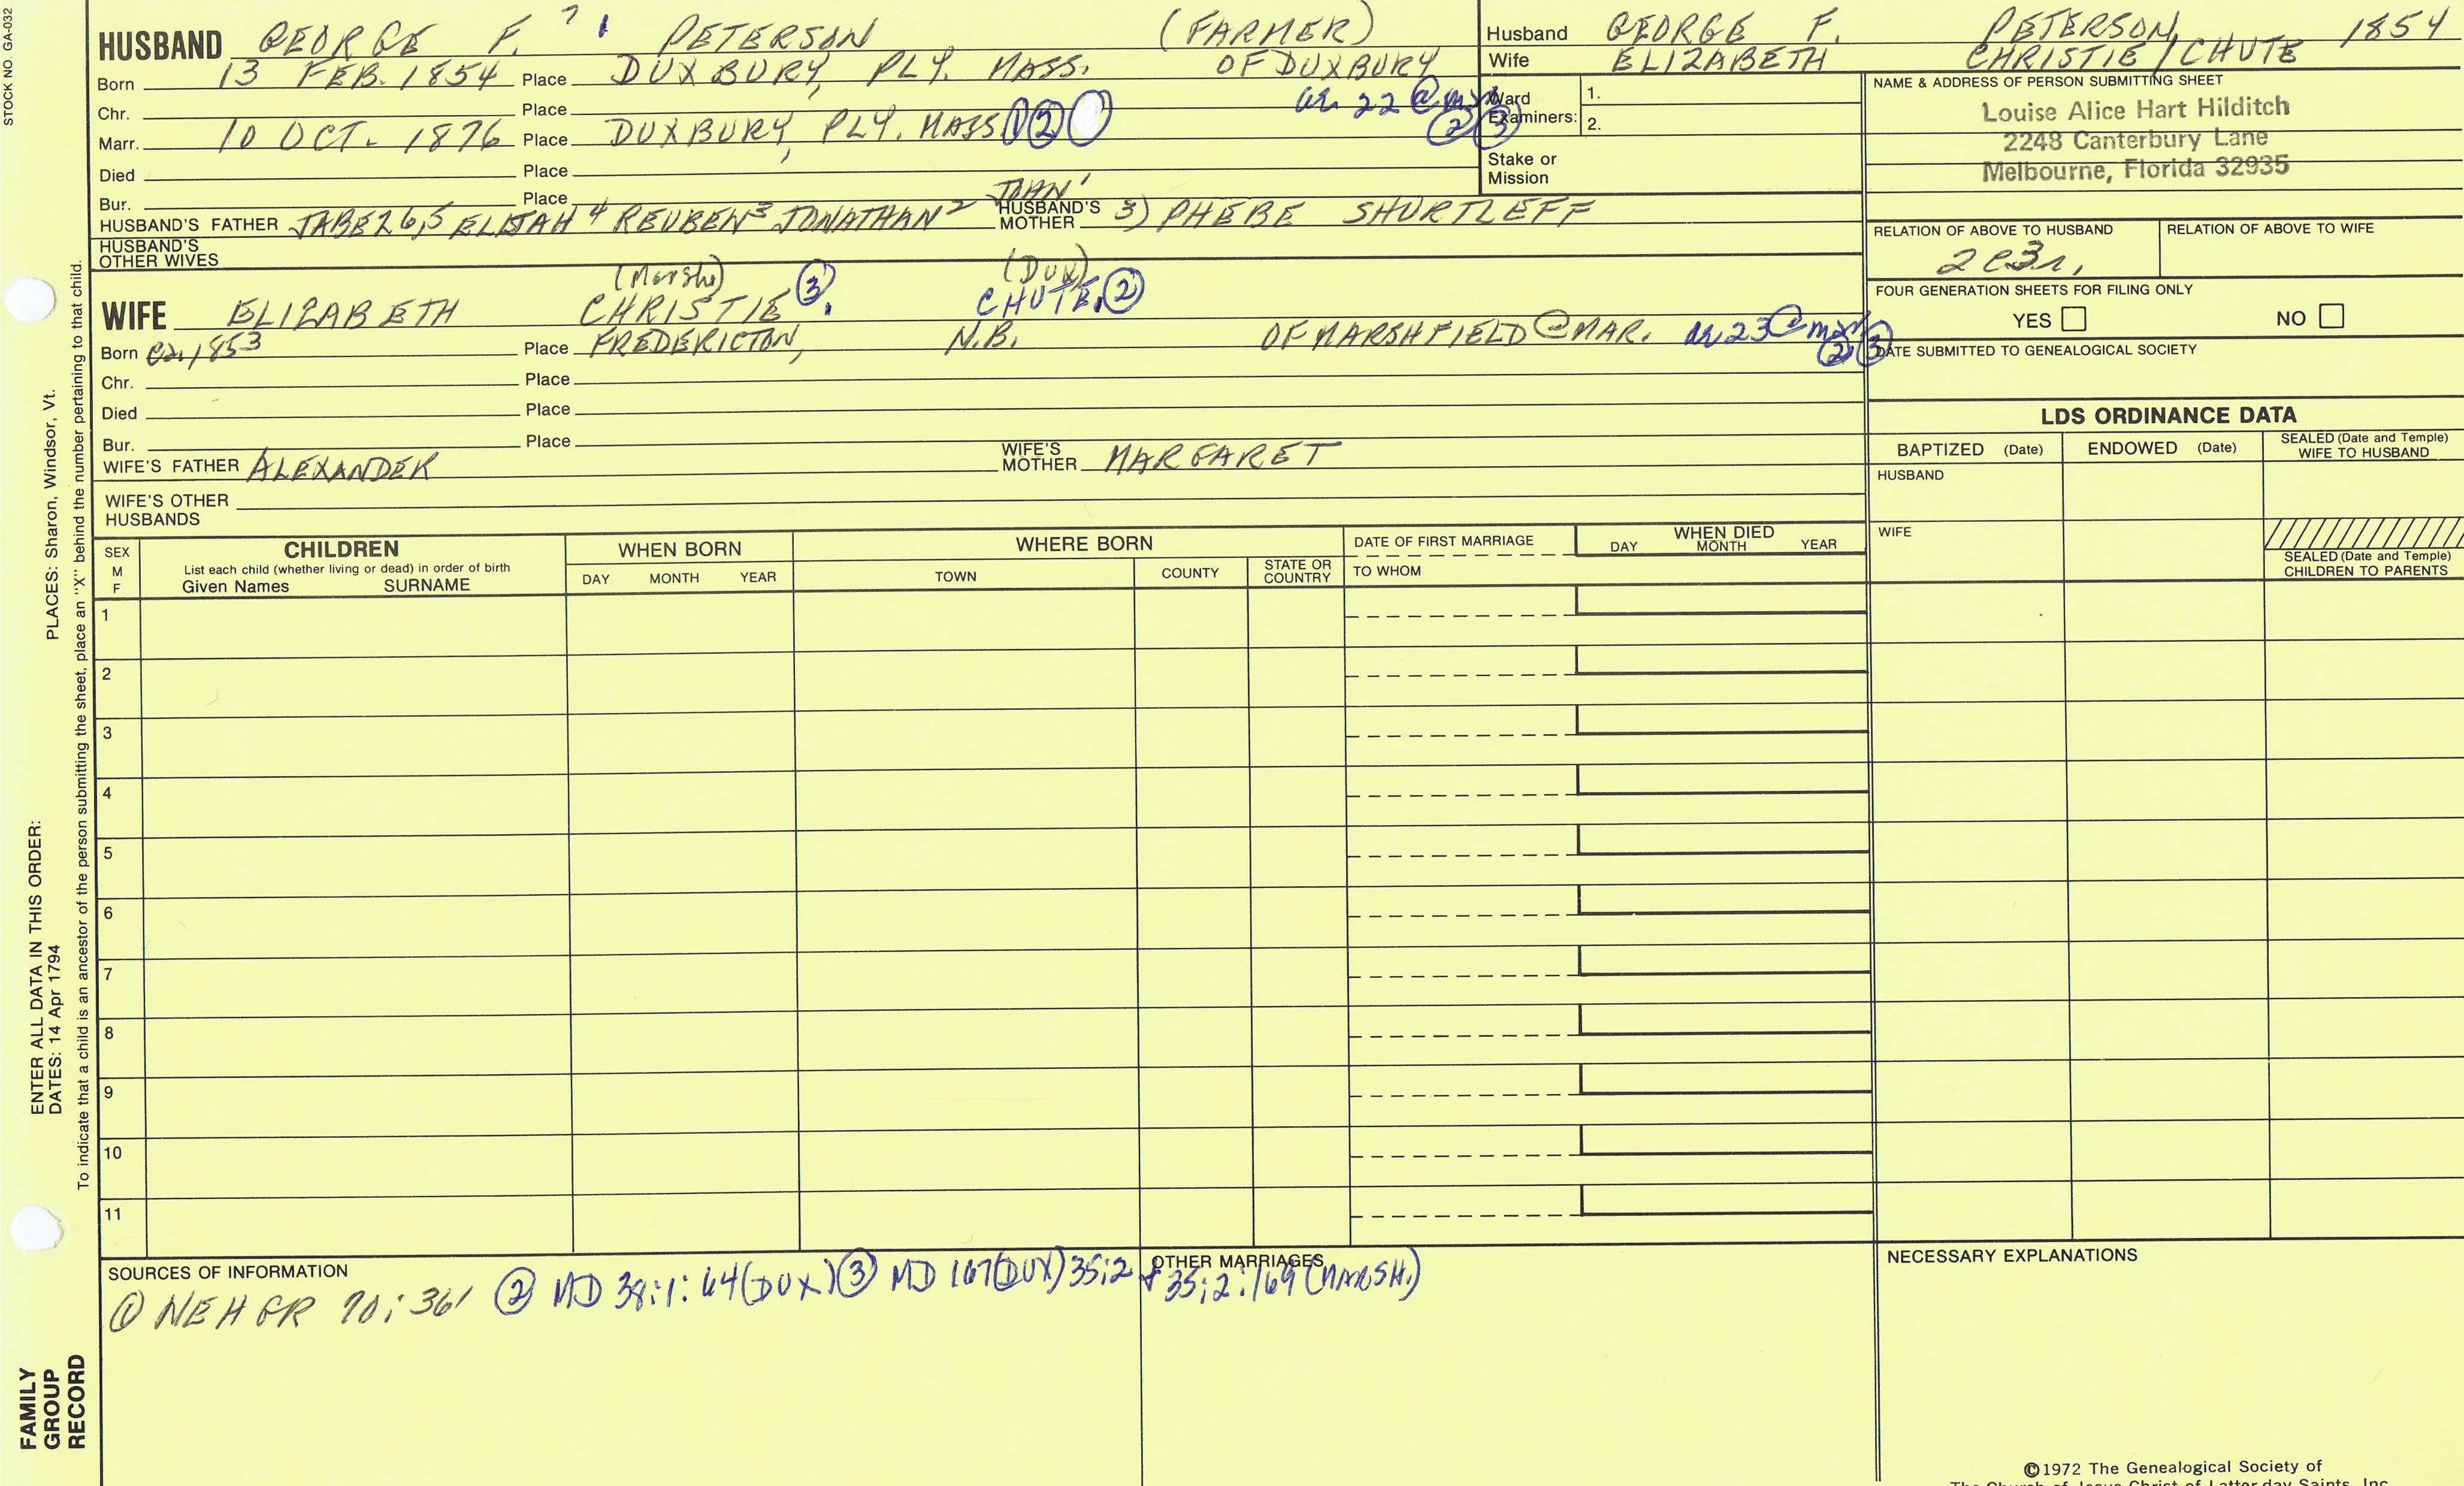 STOCK NO. GA-032
HUSBAND GEORGE F. 7 PETERSON (FARMER)
Born 13 FEB. 1854 Place DUXBURY, PLY. MASS. OF DUXBURY
Chr. Place ae. 22 @ mar ② ③
Marr. 10 OCT. 1876 Place DUXBURY, PLY. MASS ②
Died Place
Bur. Place
HUSBAND'S FATHER JABEZ 6,5 ELIJAH 4 REUBEN 3 JONATHAN 2 JOHN 1 HUSBAND'S MOTHER 3) PHEBE SHURTLEFF
HUSBAND'S OTHER WIVES
(Marsh) (Dux)
WIFE ELIZABETH CHRISTIE ③. CHUTE. ②
Born ca. 1853 Place FREDERICTON, N.B. OF MARSHFIELD @ MAR. ae 23 @ mar ② ③
Chr. Place
Died Place
Bur. Place
WIFE'S FATHER ALEXANDER WIFE'S MOTHER MARGARET
WIFE'S OTHER HUSBANDS
Husband GEORGE F. PETERSON, 1854
Wife ELIZABETH CHRISTIE / CHUTE
Ward Examiners: 1.
2.
Stake or Mission
NAME & ADDRESS OF PERSON SUBMITTING SHEET
Louise Alice Hart Hilditch
2248 Canterbury Lane
Melbourne, Florida 32935
RELATION OF ABOVE TO HUSBAND RELATION OF ABOVE TO WIFE
2c3r,
FOUR GENERATION SHEETS FOR FILING ONLY
YES NO
DATE SUBMITTED TO GENEALOGICAL SOCIETY
LDS ORDINANCE DATA
BAPTIZED (Date) ENDOWED (Date) SEALED (Date and Temple) WIFE TO HUSBAND
HUSBAND
WIFE
SEALED (Date and Temple) CHILDREN TO PARENTS
SEX M F
CHILDREN
List each child (whether living or dead) in order of birth
Given Names SURNAME
WHEN BORN
DAY MONTH YEAR
WHERE BORN
TOWN COUNTY STATE OR COUNTRY
DATE OF FIRST MARRIAGE
TO WHOM
WHEN DIED
DAY MONTH YEAR
1
2
3
4
5
6
7
8
9
10
11
SOURCES OF INFORMATION
① NEHGR 70:361 ② MD 38:1:64 (DUX) ③ MD 167 (DUX) 35:2 & 35:2:169 (MARSH.)
OTHER MARRIAGES
NECESSARY EXPLANATIONS
PLACES: Sharon, Windsor, Vt.
ENTER ALL DATA IN THIS ORDER:
DATES: 14 Apr 1794
To indicate that a child is an ancestor of the person submitting the sheet, place an "X" behind the number pertaining to that child.
FAMILY
GROUP
RECORD
©1972 The Genealogical Society of
The Church of Jesus Christ of Latter-day Saints, Inc.